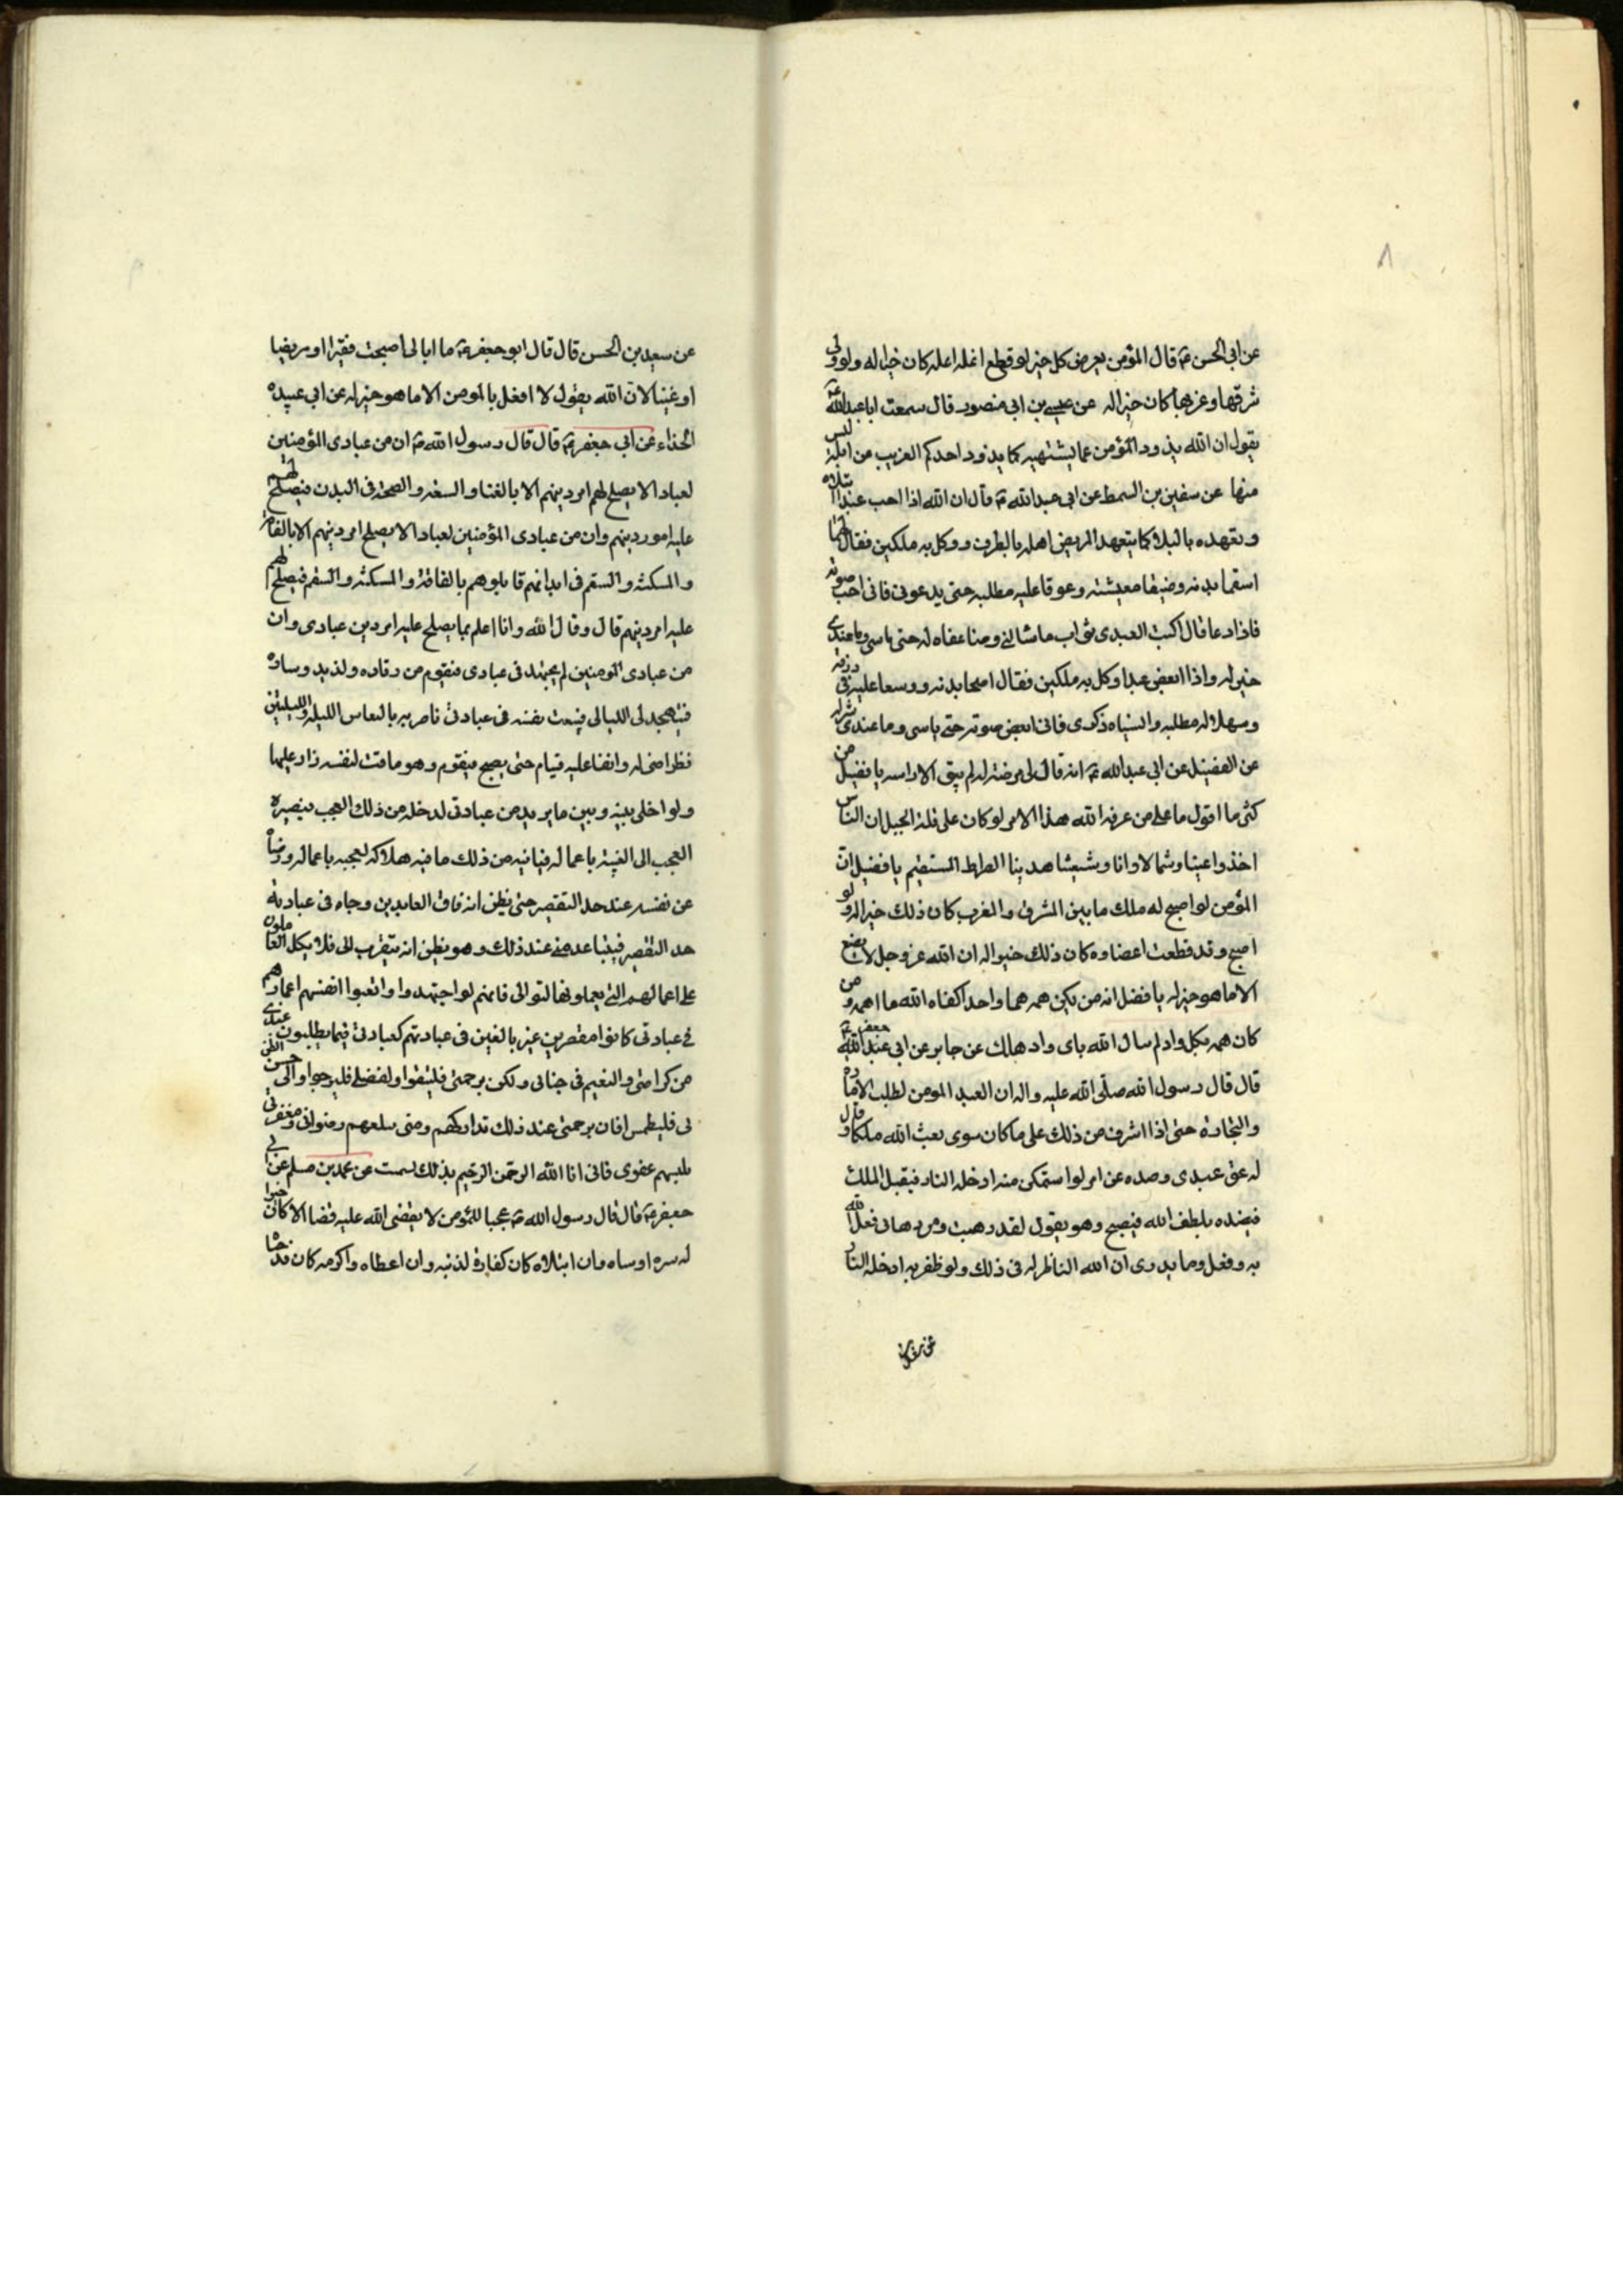 ٨
عن ابى الحسن ع قال المؤمن يعرض كل خير لو قطع انملة انملة كان خيرا له ولو ولى
شرقها وغربها كان خيرا له عن عيسى بن ابى منصور قال سمعت ابا عبدالله ع
يقول ان الله يذود المؤمن عما يشتهيه كما يذود احدكم الغريب عن ابله ليس
منها عن سفين بن السمط عن ابى عبدالله ع قال ان الله اذا احب عبدا ابتلاه
وتعهده بالبلا كما يتعهد المريض اهله بالطرف ووكل به ملكين فقال لهما
اسقما بدنه وضيقا معيشته وعوقا عليه مطلبه حتى يدعونى فانى احب صوته
فاذا دعا قال اكتبا لعبدى ثواب ما سالنى وضاعفاه له حتى ياسى وما عندى
خير له واذا ابغض عبدا وكل به ملكين فقال اصحا بدنه ووسعا عليه فى رزقه
وسهلا له مطلبه وانسياه ذكرى فانى ابغض صوته حتى ياسى وما عندى شر له
عن الفضيل عن ابى عبدالله ع انه قال فى مرضة له لم يبق الا راسه يا فضيل من
كثر ما اقول ما على من عرفه الله هذا الامر لو كان على قلة الجبل ان الناس
اخذوا يمينا وشمالا وانا وشيعتنا هدينا الصراط المستقيم يا فضيل ان
المؤمن لو اصبح له ملك ما بين المشرق والمغرب كان ذلك خيرا له ولو
اصبح وقد قطعت اعضاوه كان ذلك خيرا له ان الله عز وجل لا يصنع
الا ما هو خير له يا فضل انه من يكن همه هما واحدا كفاه الله ما اهمه ومن
كان همه بكل واد لم يبال الله باى واد هلك عن جابر عن ابى عبدالله جعفر ع
قال قال رسول الله صلى الله عليه واله ان العبد المومن لطلب الامارة
والتجارة حتى اذا اشرف من ذلك على ما كان سوى بعث الله ملكا وقال
له عق عبدى وصده عن امر لو استمكن منه ادخله النار فيقبل الملك
فيصده بلطف الله فيصبح وهو يقول لقد دهيت ومن دهانى فعل الله
به وفعل وما يدرى ان الله الناظر له فى ذلك ولو ظفر به ادخله النار
عن سعيد بن الحسن قال قال ابو جعفر ع ما ابالى اصبحت فقيرا او مريضا
او غنيا لان الله يقول لا افعل بالمومن الا ما هو خير له عن ابى عبيده
الحذاء عن ابى جعفر ع قال قال رسول الله ص ان من عبادى المؤمنين
لعبادا لا يصلح لهم امر دينهم الا بالغنا والسعة والصحة فى البدن فيصلح لهم
عليه امور دينهم وان من عبادى المؤمنين لعبادا لا يصلح امر دينهم الا بالفاقة
والمسكنة والسقم فى ابدانهم فابلوهم بالفاقة والمسكنة والسقم فيصلح لهم
عليه امر دينهم قال وقال الله وانا اعلم بما يصلح عليه امر دين عبادى وان
من عبادى المومنين لم يجتهد فى عبادى فيقوم من رقاده ولذيد وساده
فيتهجد لى الليالى فيتعب نفسه فى عبادتى فاضربه بالنعاس الليلة والليلتين
نظرا منى له وابقا عليه فينام حتى يصبح فيقوم وهو ماقت لنفسه زار عليها
ولو اخلى بينه وبين ما يريد من عبادتى لدخله من ذلك العجب فيصيره
العجب الى الفتنة باعماله فياتيه من ذلك ما فيه هلاكه لعجبه باعماله ورضاه
عن نفسه عند حد التقصير حتى يظن انه فاق العابدين وجاه فى عبادته
حد التقصير فيتباعد منى عند ذلك وهو يظن انه يتقرب الى فلا يتكل العاملون
على اعمالهم التى يعملونها لثوابى فانهم لو اجتهدوا واتعبوا انفسهم اعمارهم
فى عبادتى كانوا مقصرين غير بالغين فى عبادتهم كعبادتى فيما يطلبون عندى
من كرامتى والنعيم فى جناتى ولكن برحمتى فليثقوا ولفضلى فليرجوا والى حسن الظن
بى فليطمئنوا فان برحمتى عند ذلك تداركهم ومنى يبلغهم رضوانى ومغفرتى
يلبسهم عفوى فانى انا الله الرحمن الرحيم بذلك تسمت عن محمد بن مسلم عن ابى
جعفر ع قال قال رسول الله ص عجبا للمؤمن لا يقضى الله عليه قضا الا كان خيرا
له سره او ساه وان ابتلاه كان كفارة لذنبه وان اعطاه واكرمه كان قد حباه